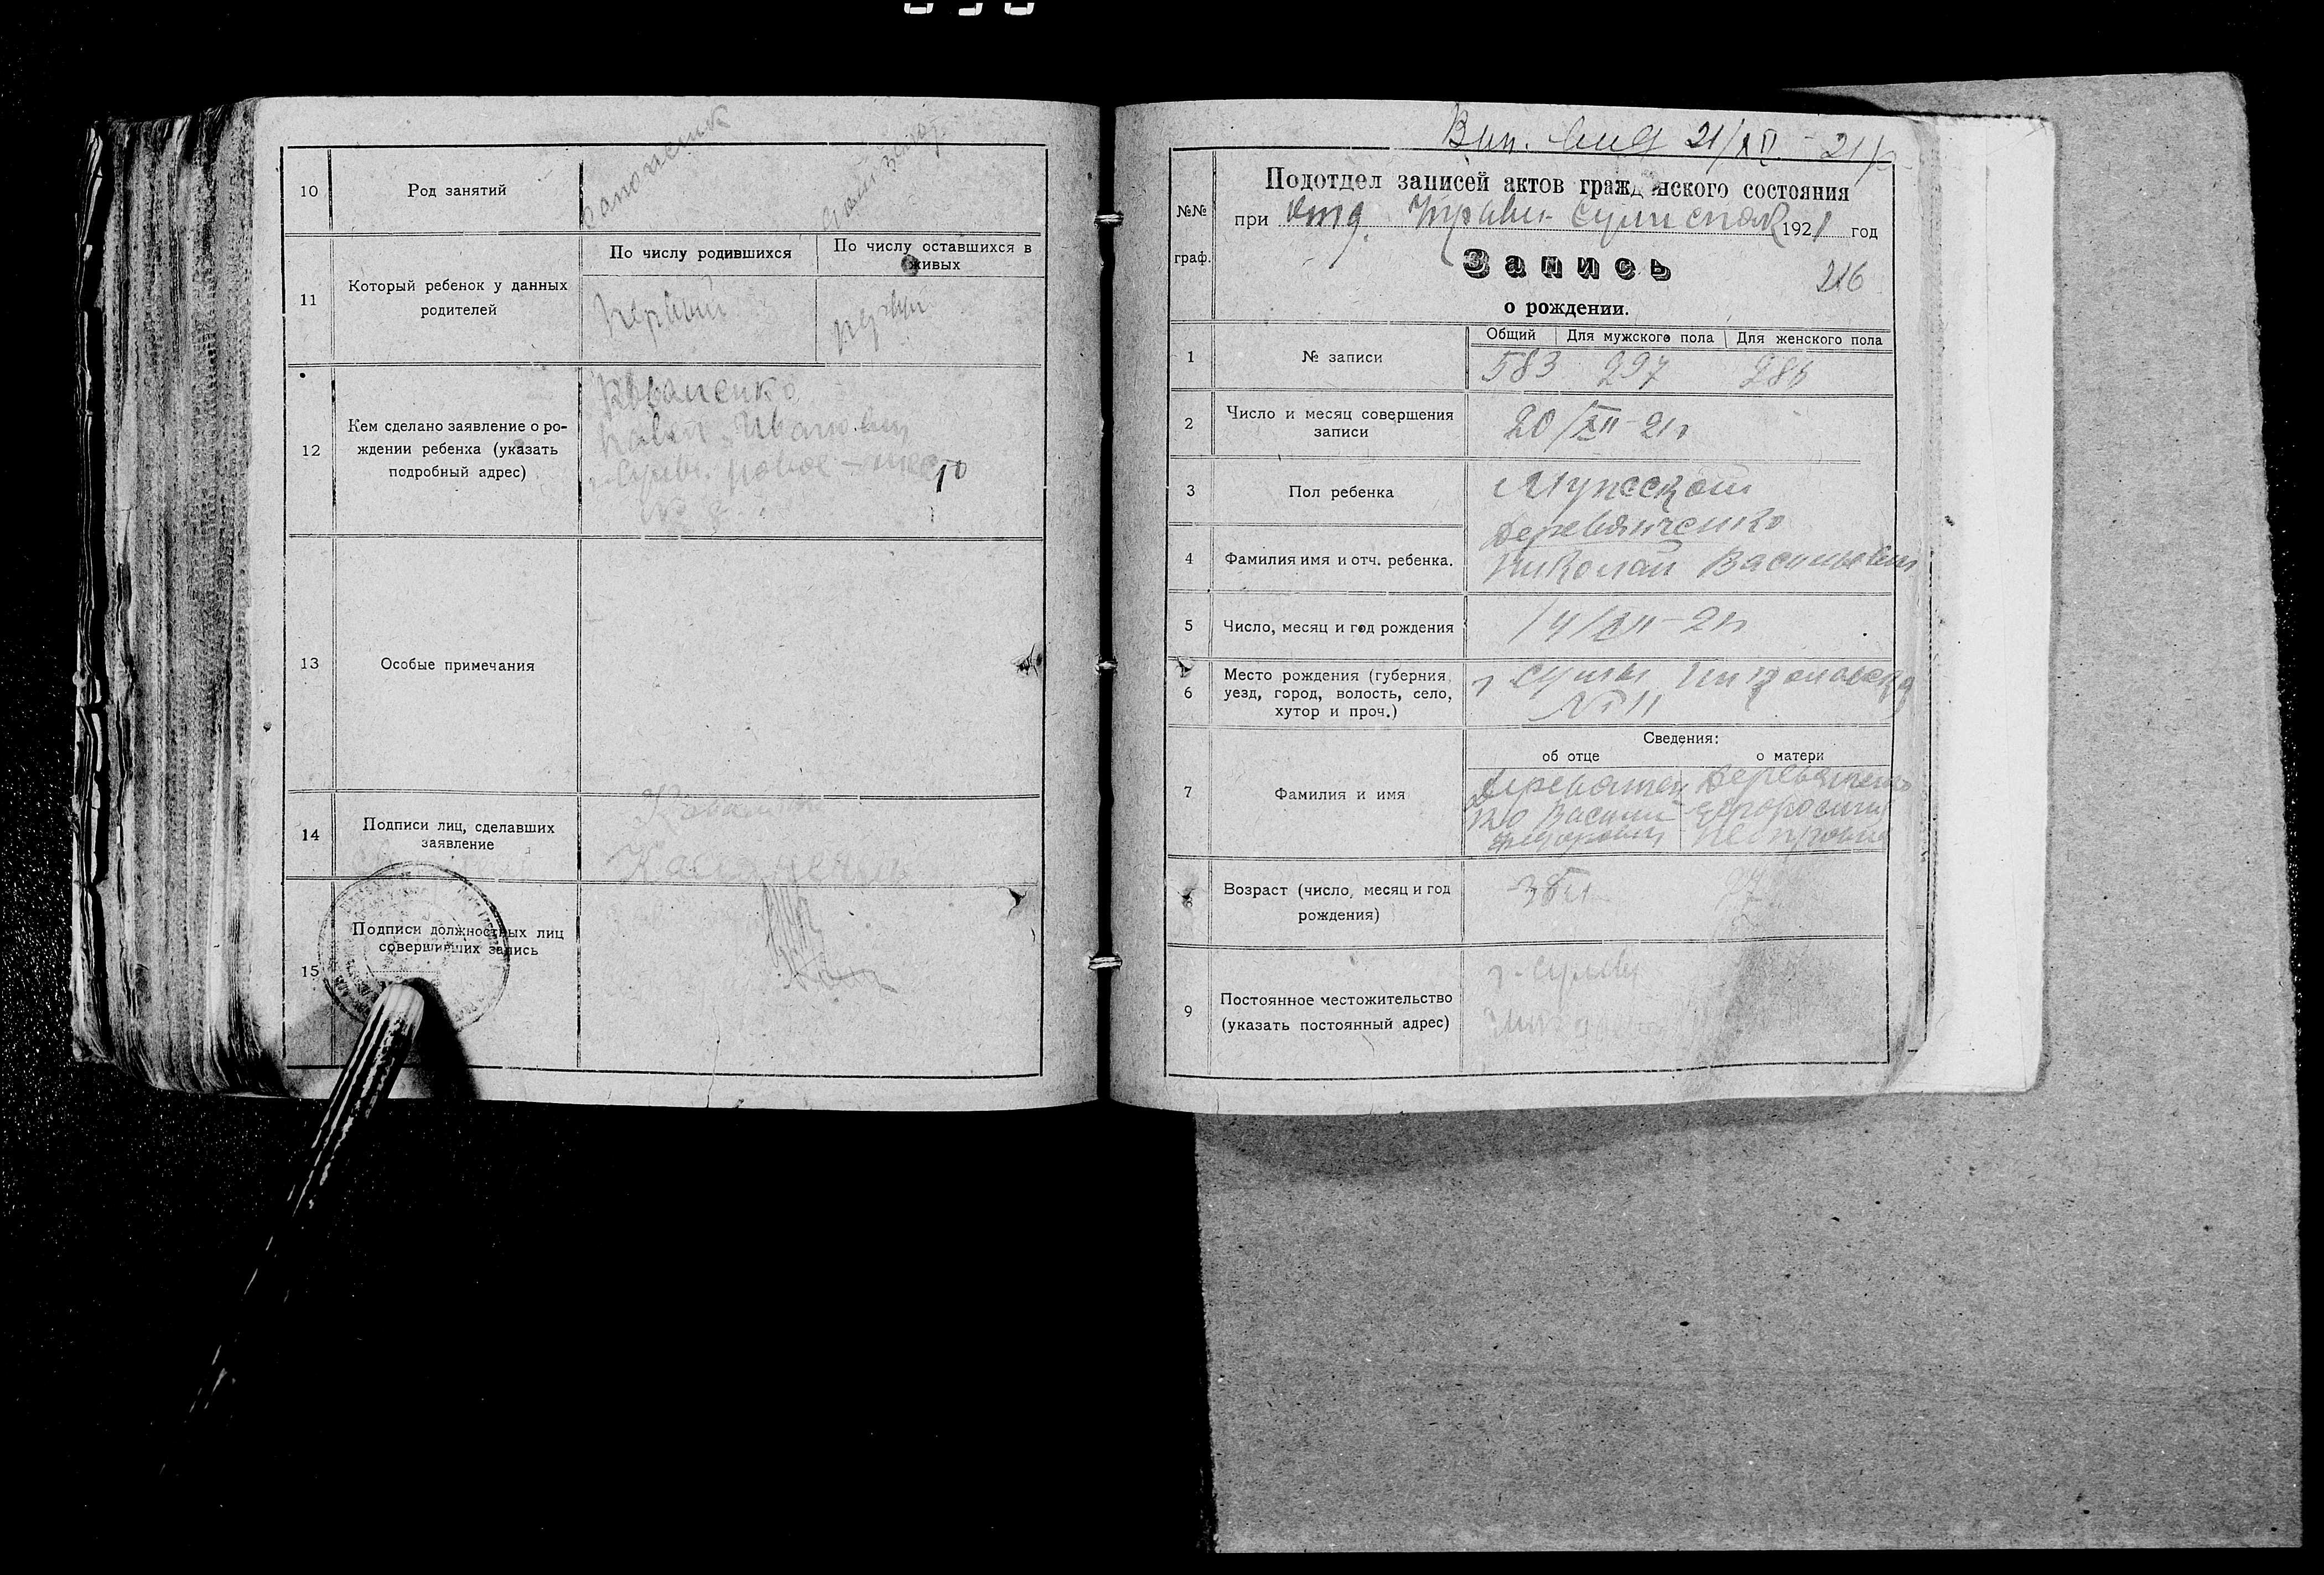 10
Род занятий
сапожник
домі хозяй.
11
Который ребенок у данных
родителей
По числу родившихся
По числу оставшихся в
живых
первый
первый
12
Кем сделано заявление о ро-
ждении ребенка (указать
подробный адрес)
Коваленко
Павел Иванович
г. Сумы. новое-место
№ 8
13
Особые примечания
14
Подписи лиц, сделавших
заявление
15
Подписи должностных лиц
совершивших запись
Вып. 21/XII-21 г
№№
граф.
Подотдел записей актов гражданского состояния
при Отд. Управ. Сумиспол 1921 год
Запись
216
о рождении.
1
№ записи
Общий Для мужского пола Для женского пола
583 297 286
2
Число и месяц совершения
записи
20/XII-21г
3
Пол ребенка
Мужской
4
Фамилия имя и отч. ребенка.
Деревянченко
Николай Васильевич
5
Число, месяц и год рождения
14/XII-21г
6
Место рождения (губерния,
уезд, город, волость, село,
хутор и проч.)
г Сумы
№ 11
7
Фамилия и имя
Сведения:
об отце
о матери
Деревянчен
ко Васили
Федорович
Деревянченко
Ефросиния
Петровна
8
Возраст (число, месяц и год
рождения)
38 л
27
9
Постоянное местожительство
(указать постоянный адрес)
г. Сумы